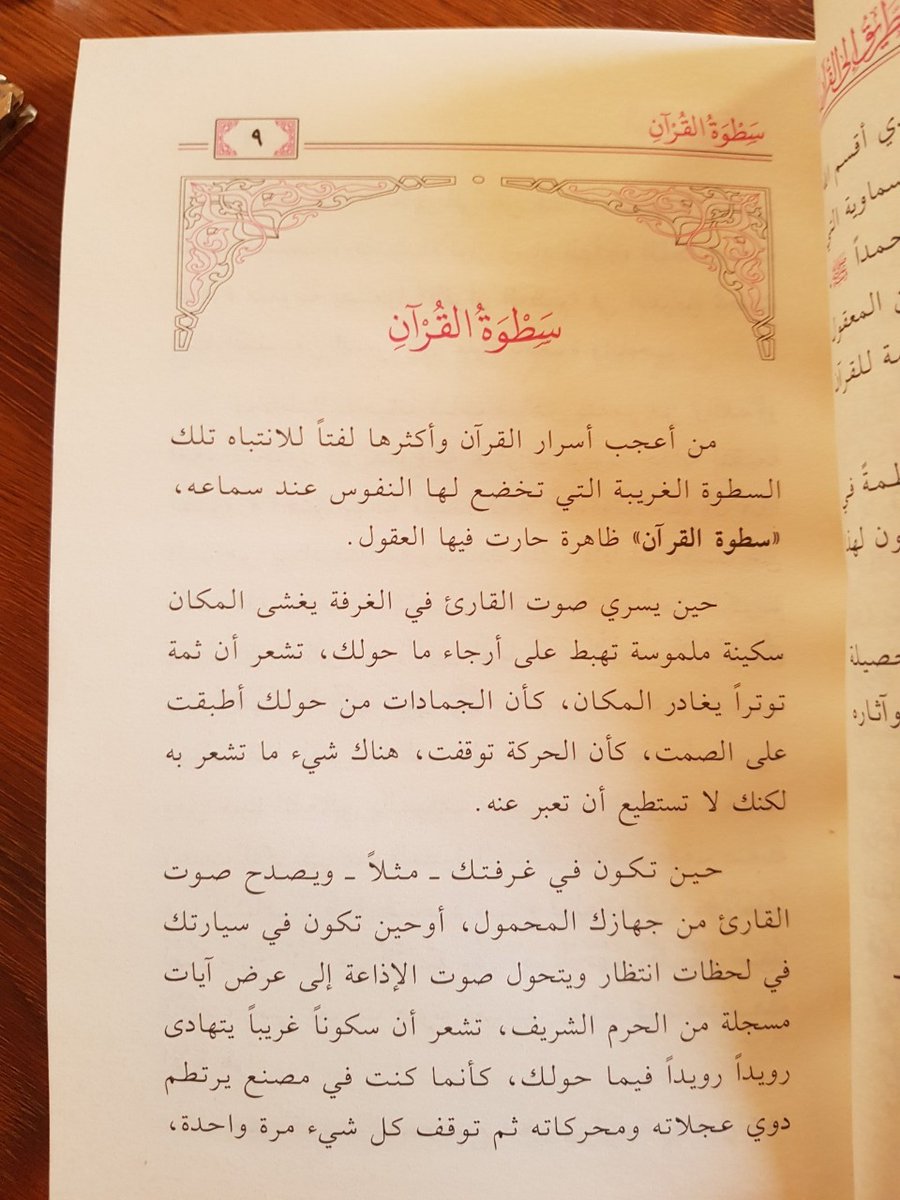 سَطْوَةُ القُرْآنِ
٩
سَطْوَةُ القُرْآنِ
من أعجب أسرار القرآن وأكثرها لفتاً للانتباه تلك
السطوة الغريبة التي تخضع لها النفوس عند سماعه،
«سطوة القرآن» ظاهرة حارت فيها العقول.
حين يسري صوت القارئ في الغرفة يغشى المكان
سكينة ملموسة تهبط على أرجاء ما حولك، تشعر أن ثمة
توتراً يغادر المكان، كأن الجمادات من حولك أطبقت
على الصمت، كأن الحركة توقفت، هناك شيء ما تشعر به
لكنك لا تستطيع أن تعبر عنه.
حين تكون في غرفتك ـ مثلاً ـ ويصدح صوت
القارئ من جهازك المحمول، أوحين تكون في سيارتك
في لحظات انتظار ويتحول صوت الإذاعة إلى عرض آيات
مسجلة من الحرم الشريف، تشعر أن سكوناً غريباً يتهادى
رويداً رويداً فيما حولك، كأنما كنت في مصنع يرتطم
دوي عجلاته ومحركاته ثم توقف كل شيء مرة واحدة،
أقسم
المعقول
للقرآن
في
حصيلة
وآثاره